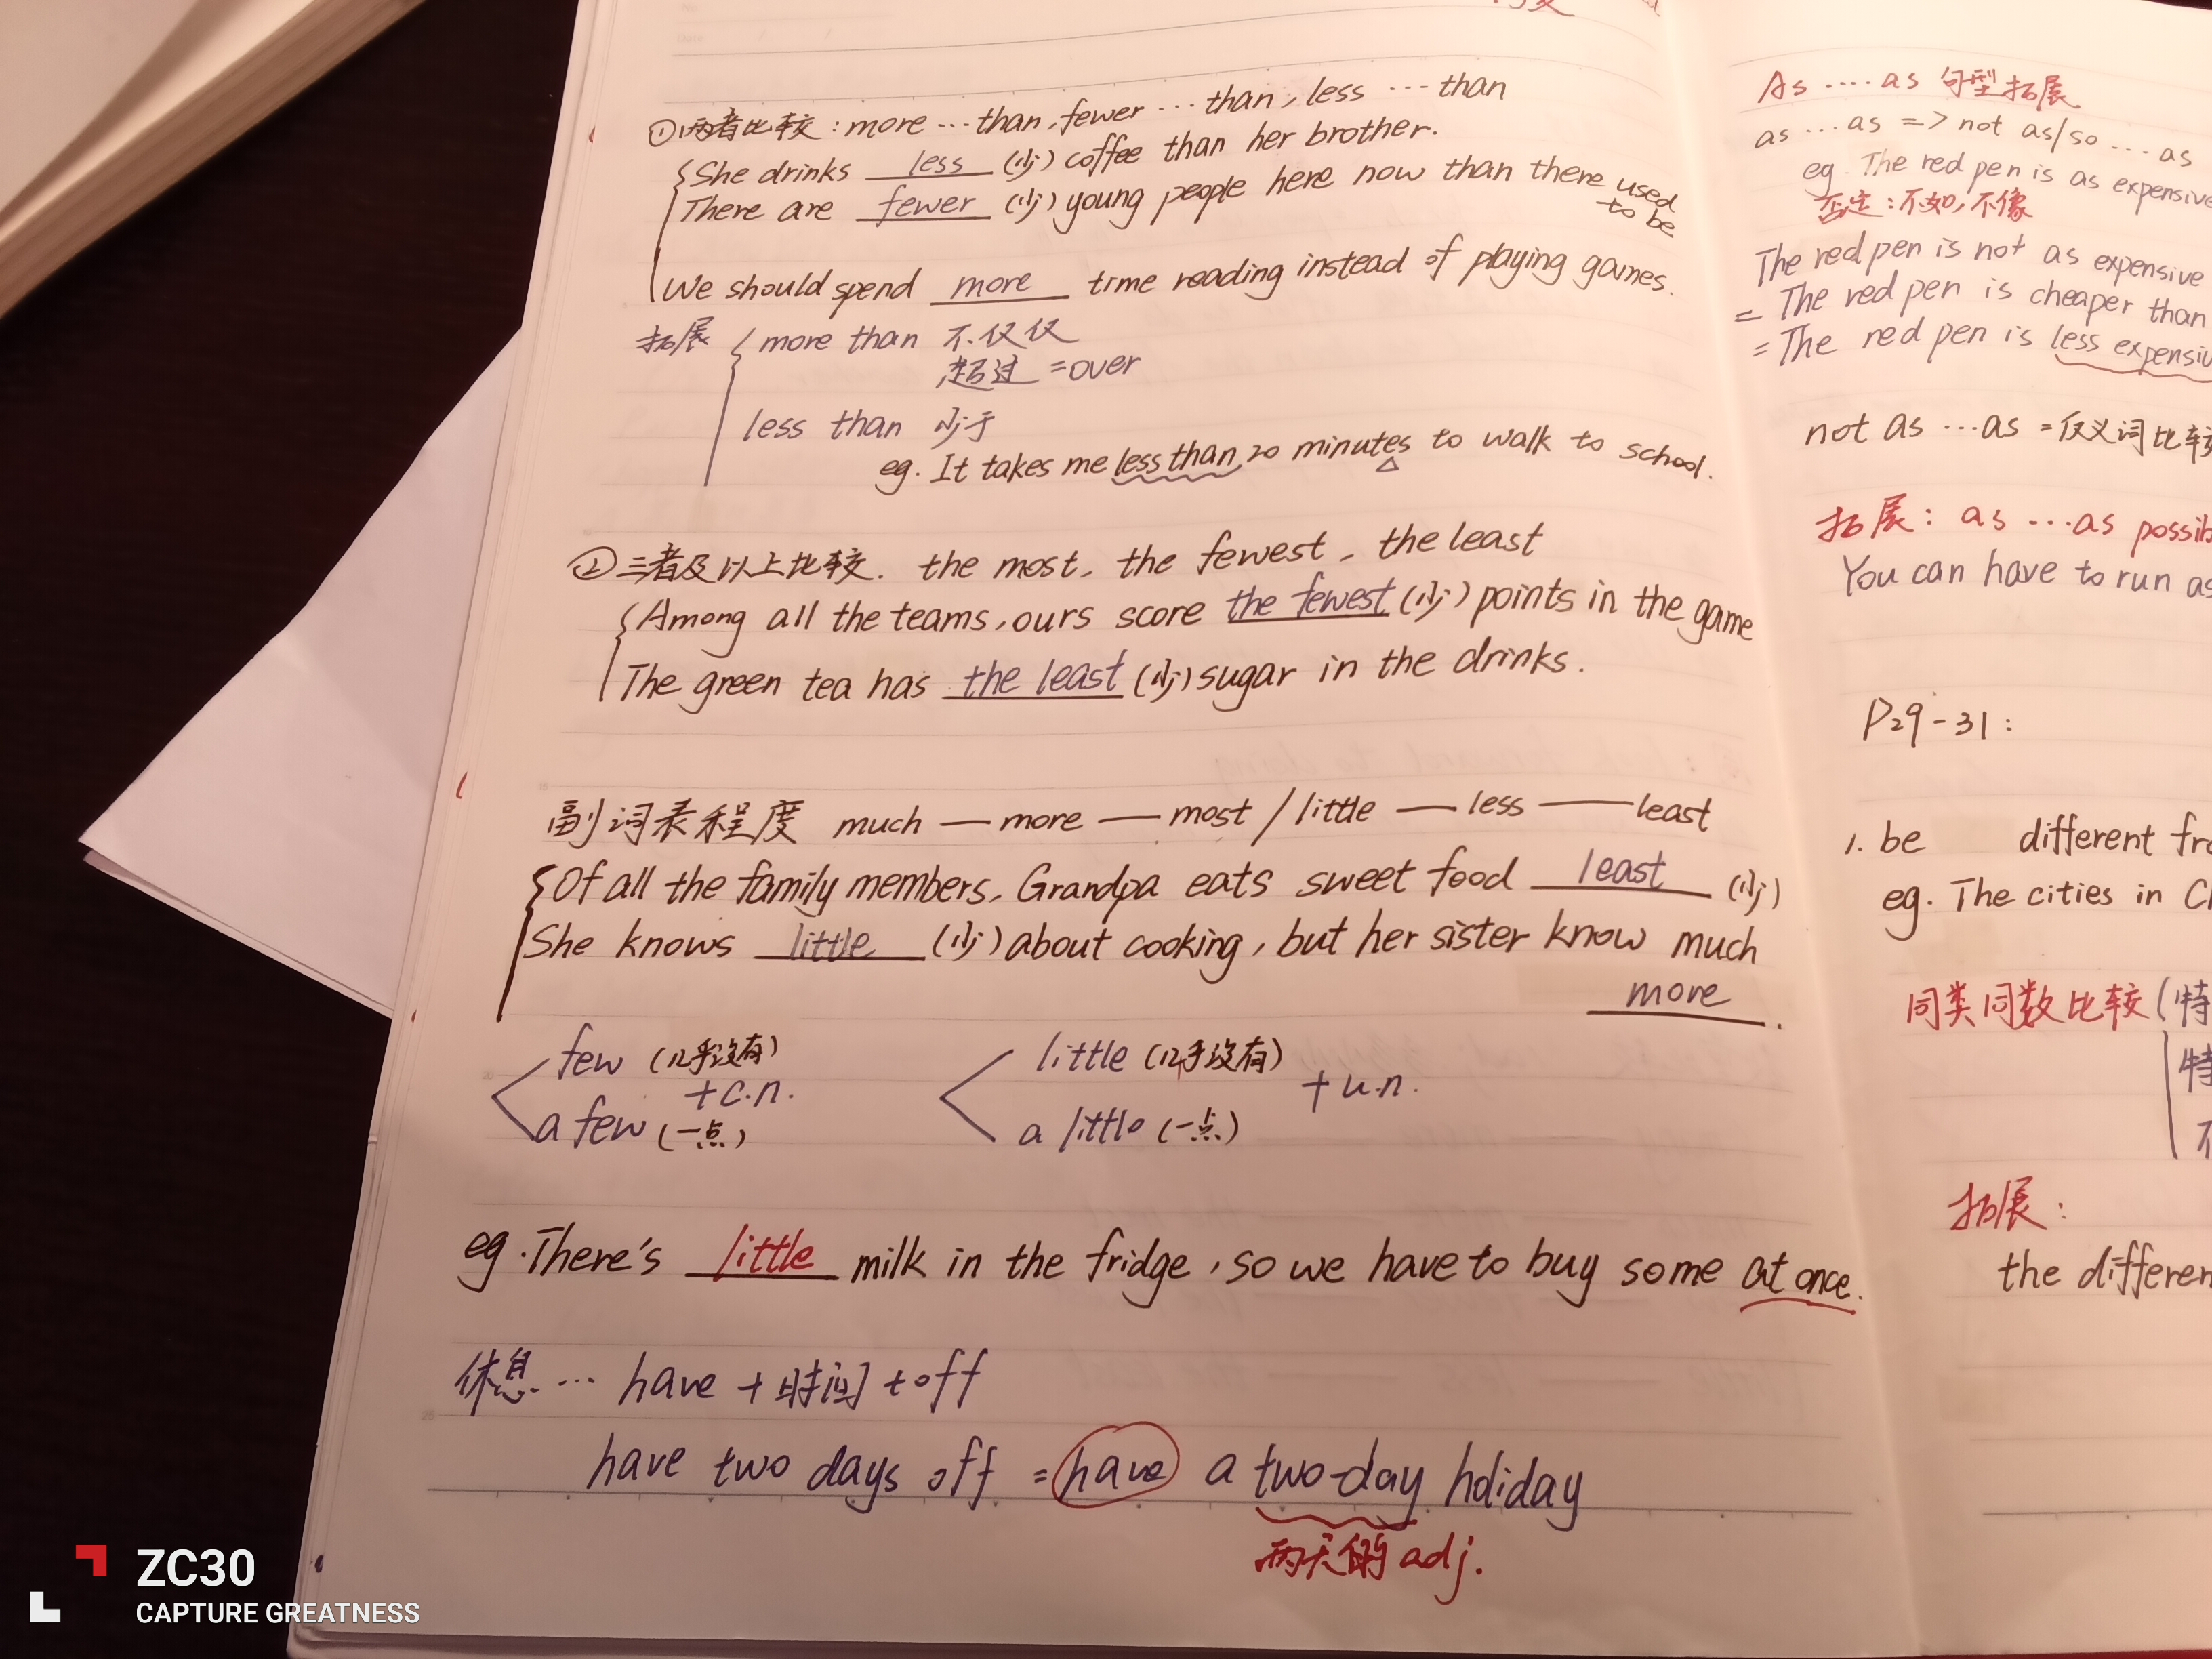 ①两者比较：more…than, fewer…than, less…than
She drinks less (少) coffee than her brother.
There are fewer (少) young people here now than there used
to be
We should spend more time reading instead of playing games.
拓展 more than 不仅仅
超过 =over
less than 少于
eg. It takes me less than 20 minutes to walk to school.
②三者及以上比较. the most, the fewest, the least
Among all the teams, ours score the fewest (少) points in the game
The green tea has the least (少) sugar in the drinks.
副词表程度 much — more — most / little — less — least
Of all the family members, Grandpa eats sweet food least (少)
She knows little (少) about cooking, but her sister know much
more.
few (几乎没有)
+c.n.
a few (一点)
little (几乎没有)
+u.n.
a little (一点)
eg. There's little milk in the fridge, so we have to buy some at once.
休息… have + 时间 + off
have two days off = have a two-day holiday
两天的 adj.
As ····as 句型拓展
as …as => not as/so …as
eg. The red pen is as expensive
否定：不如，不像
The red pen is not as expensive
= The red pen is cheaper than
= The red pen is less expensiv
not as …as = 反义词比较
拓展： as …as possib
You can have to run as
P29-31:
1. be different fro
eg. The cities in C
同类同数比较(特
特
不
拓展：
the differen
ZC30
CAPTURE GREATNESS